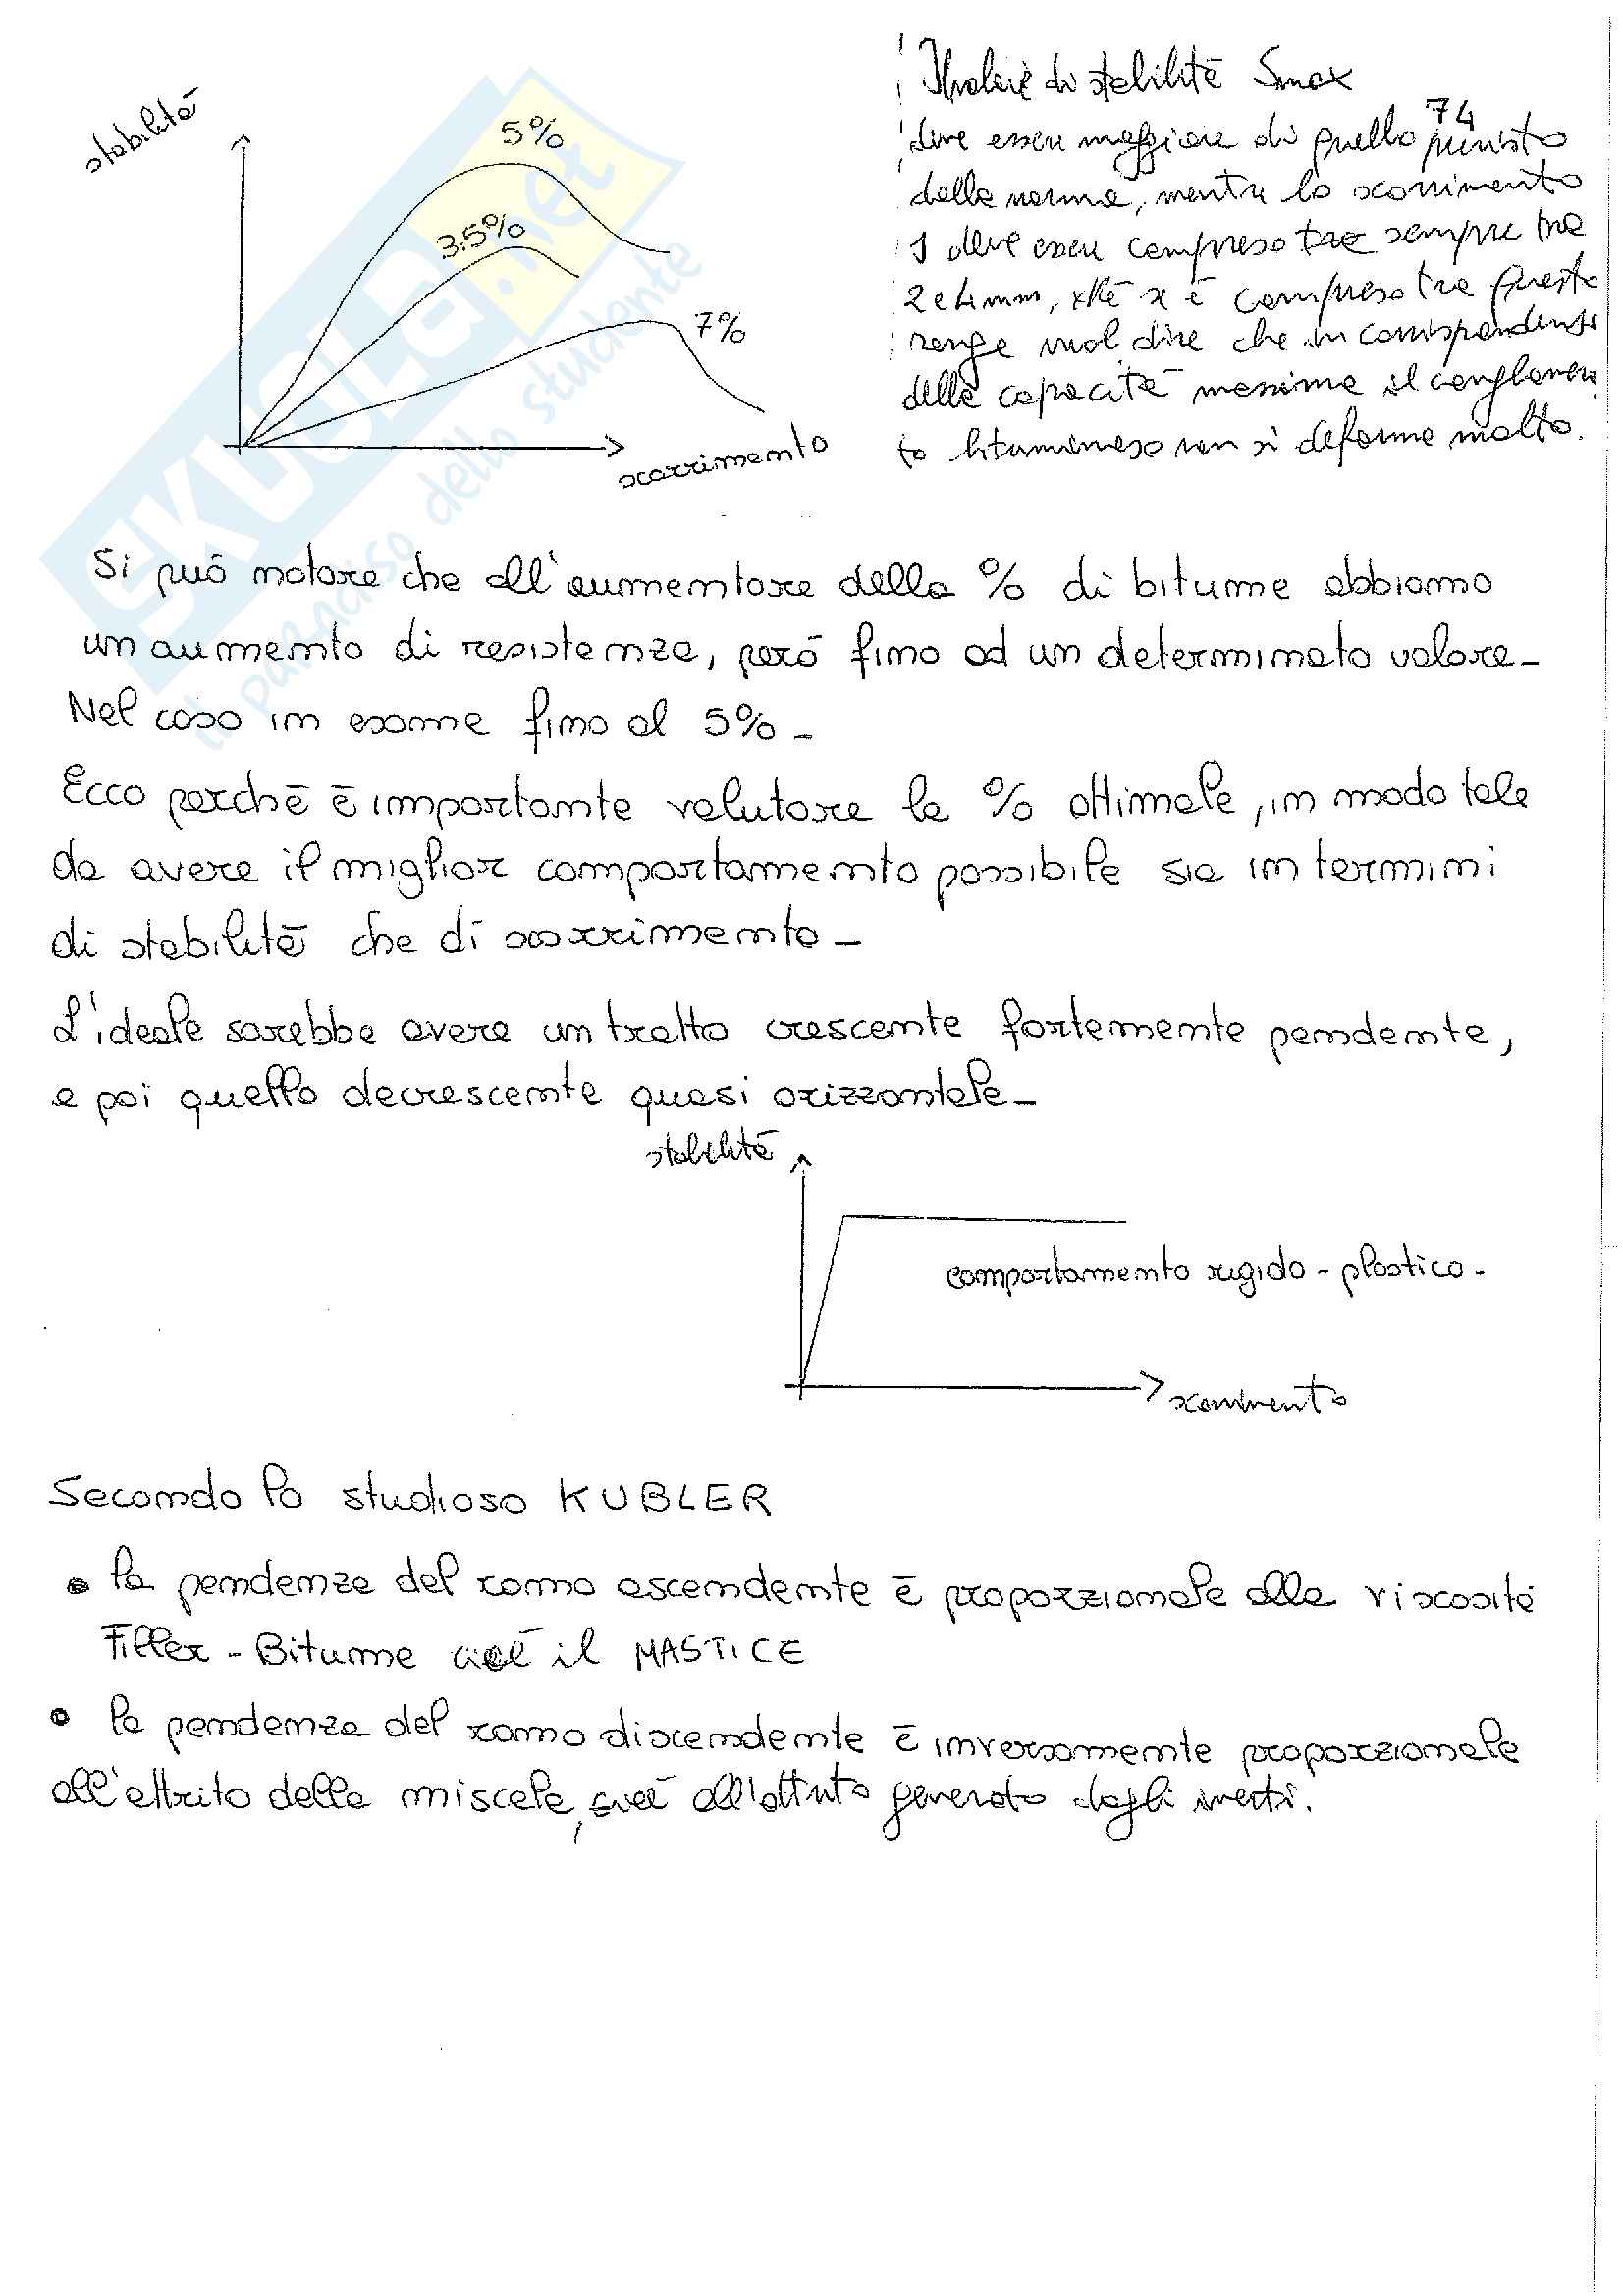 stabilità
5%
3.5%
7%
scorrimento
Il valore di stabilità Smax
74
deve essere maggiore di quello previsto
dalla norma, mentre lo scorrimento
s deve essere compreso tra sempre tra
2 e 4 mm, xkè se è compreso tra questo
range vuol dire che in corrispondenza
della capacità massima il conglomera
to bituminoso non si deforma molto.
SKUOLA.net
il paradiso dello studente
Si può notare che all'aumentare della % di bitume abbiamo
un aumento di resistenza, però fino ad un determinato valore_
Nel caso in esame fino al 5% _
Ecco perchè è importante valutare la % ottimale, in modo tale
da avere il miglior comportamento possibile sia in termini
di stabilità che di scorrimento_
L'ideale sarebbe avere un tratto crescente fortemente pendente,
e poi quello decrescente quasi orizzontale_
stabilità
comportamento rigido-plastico-
scorrimento
Secondo lo studioso KUBLER
• la pendenza del ramo ascendente è proporzionale alla viscosità
Filler-Bitume cioè il MASTICE
• la pendenza del ramo discendente è inversamente proporzionale
all'attrito della miscela, cioè all'attrito generato dagli inerti.